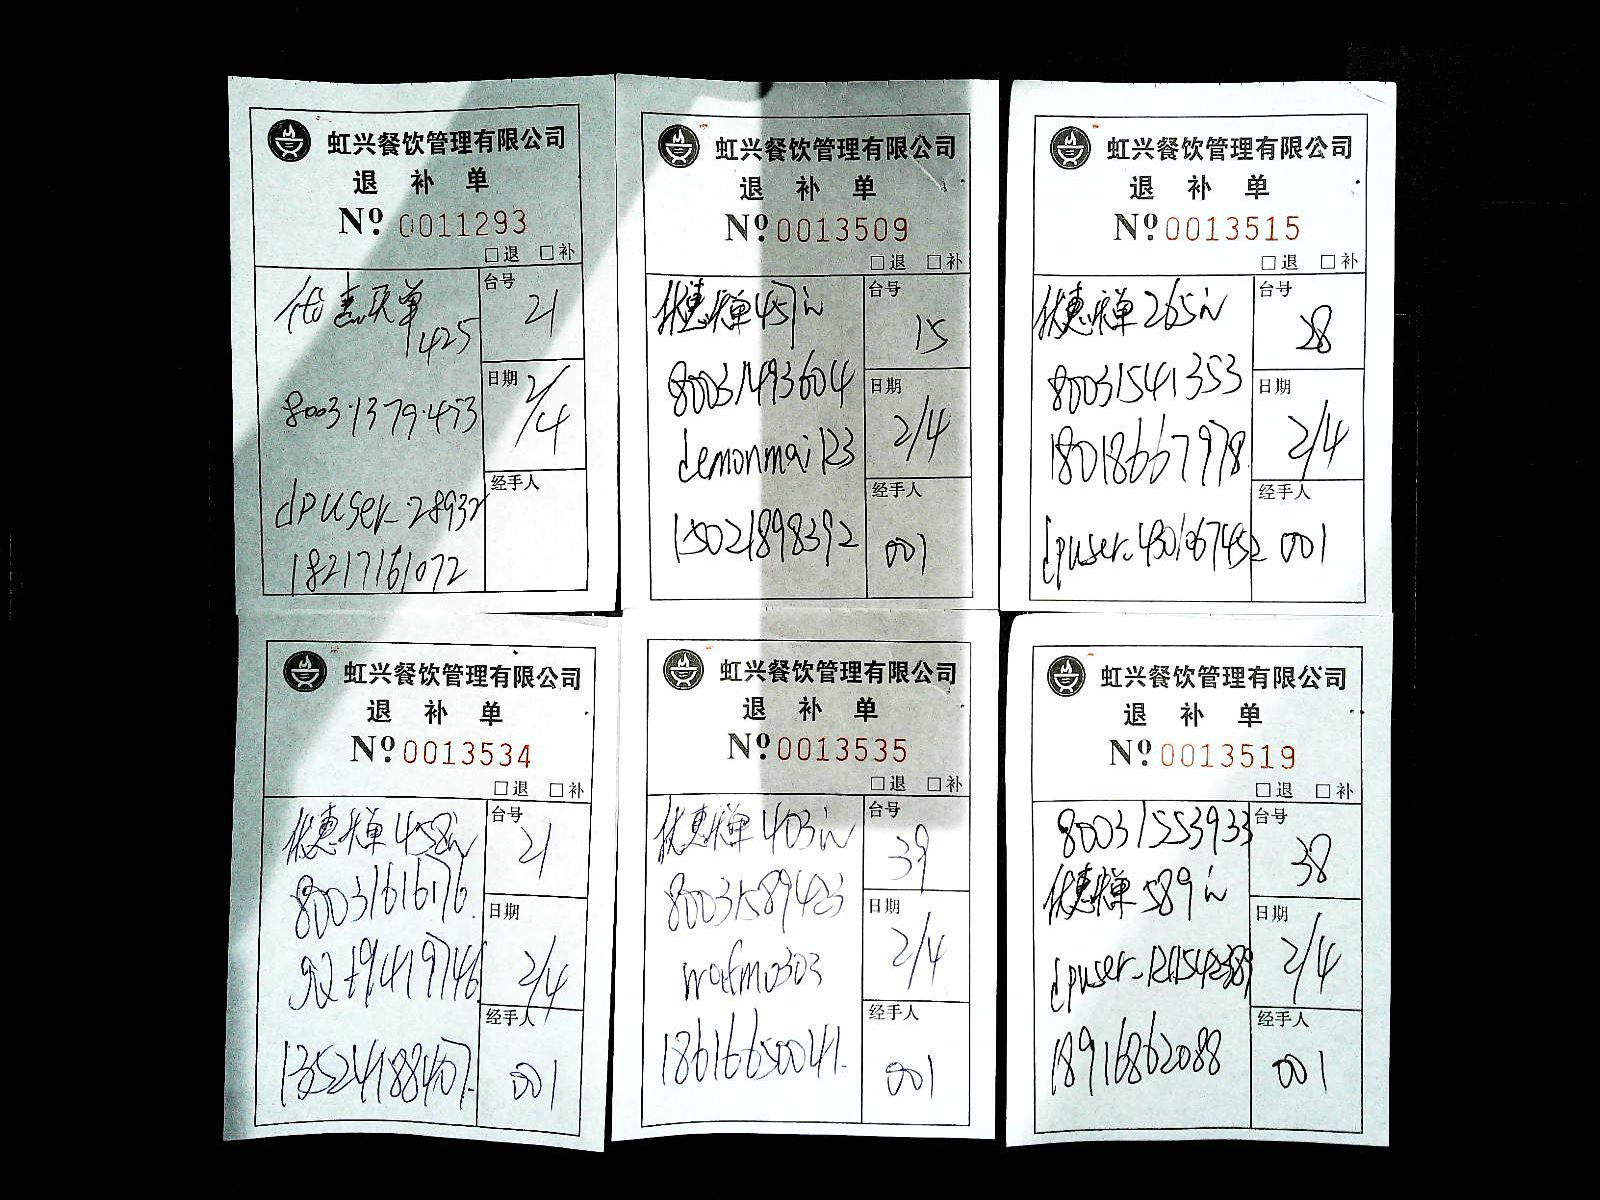 虹兴餐饮管理有限公司
退 补 单
Nº 0011293
□退 □补
优惠买单
425
8003·1379·473
dpuser-28932
18217161072
台号
21
日期
2/4
经手人
虹兴餐饮管理有限公司
退 补 单
Nº 0013509
□退 □补
优惠买单457元
80031493604
demonmai123
15021898392
台号
15
日期
2/4
经手人
001
虹兴餐饮管理有限公司
退 补 单
Nº 0013515
□退 □补
优惠买单265元
80031541353
18018667978
dpuser-4301067452
台号
28
日期
2/4
经手人
001
虹兴餐饮管理有限公司
退 补 单
Nº 0013534
□退 □补
优惠买单458元
80031616176
13524188407
台号
21
日期
2/4
经手人
001
虹兴餐饮管理有限公司
退 补 单
Nº 0013535
□退 □补
优惠买单403元
80031589423
wafm0303
18616650041
台号
39
日期
2/4
经手人
001
虹兴餐饮管理有限公司
退 补 单
Nº 0013519
□退 □补
80031553933
优惠买单589元
18916862088
台号
38
日期
2/4
经手人
001